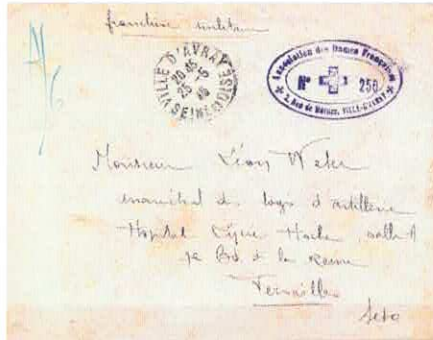 franchise militaire
VILLE D'AVRAY
20 45
25 -5
40
SEINE-ET-OISE
Association des Dames Françaises
N° 250
2, Rue de Marnes, VILLE-D'AVRAY
Monsieur Léon
maréchal des logis d'artillerie
Hôpital Hoche, salle A
Bd de la Reine
Versailles